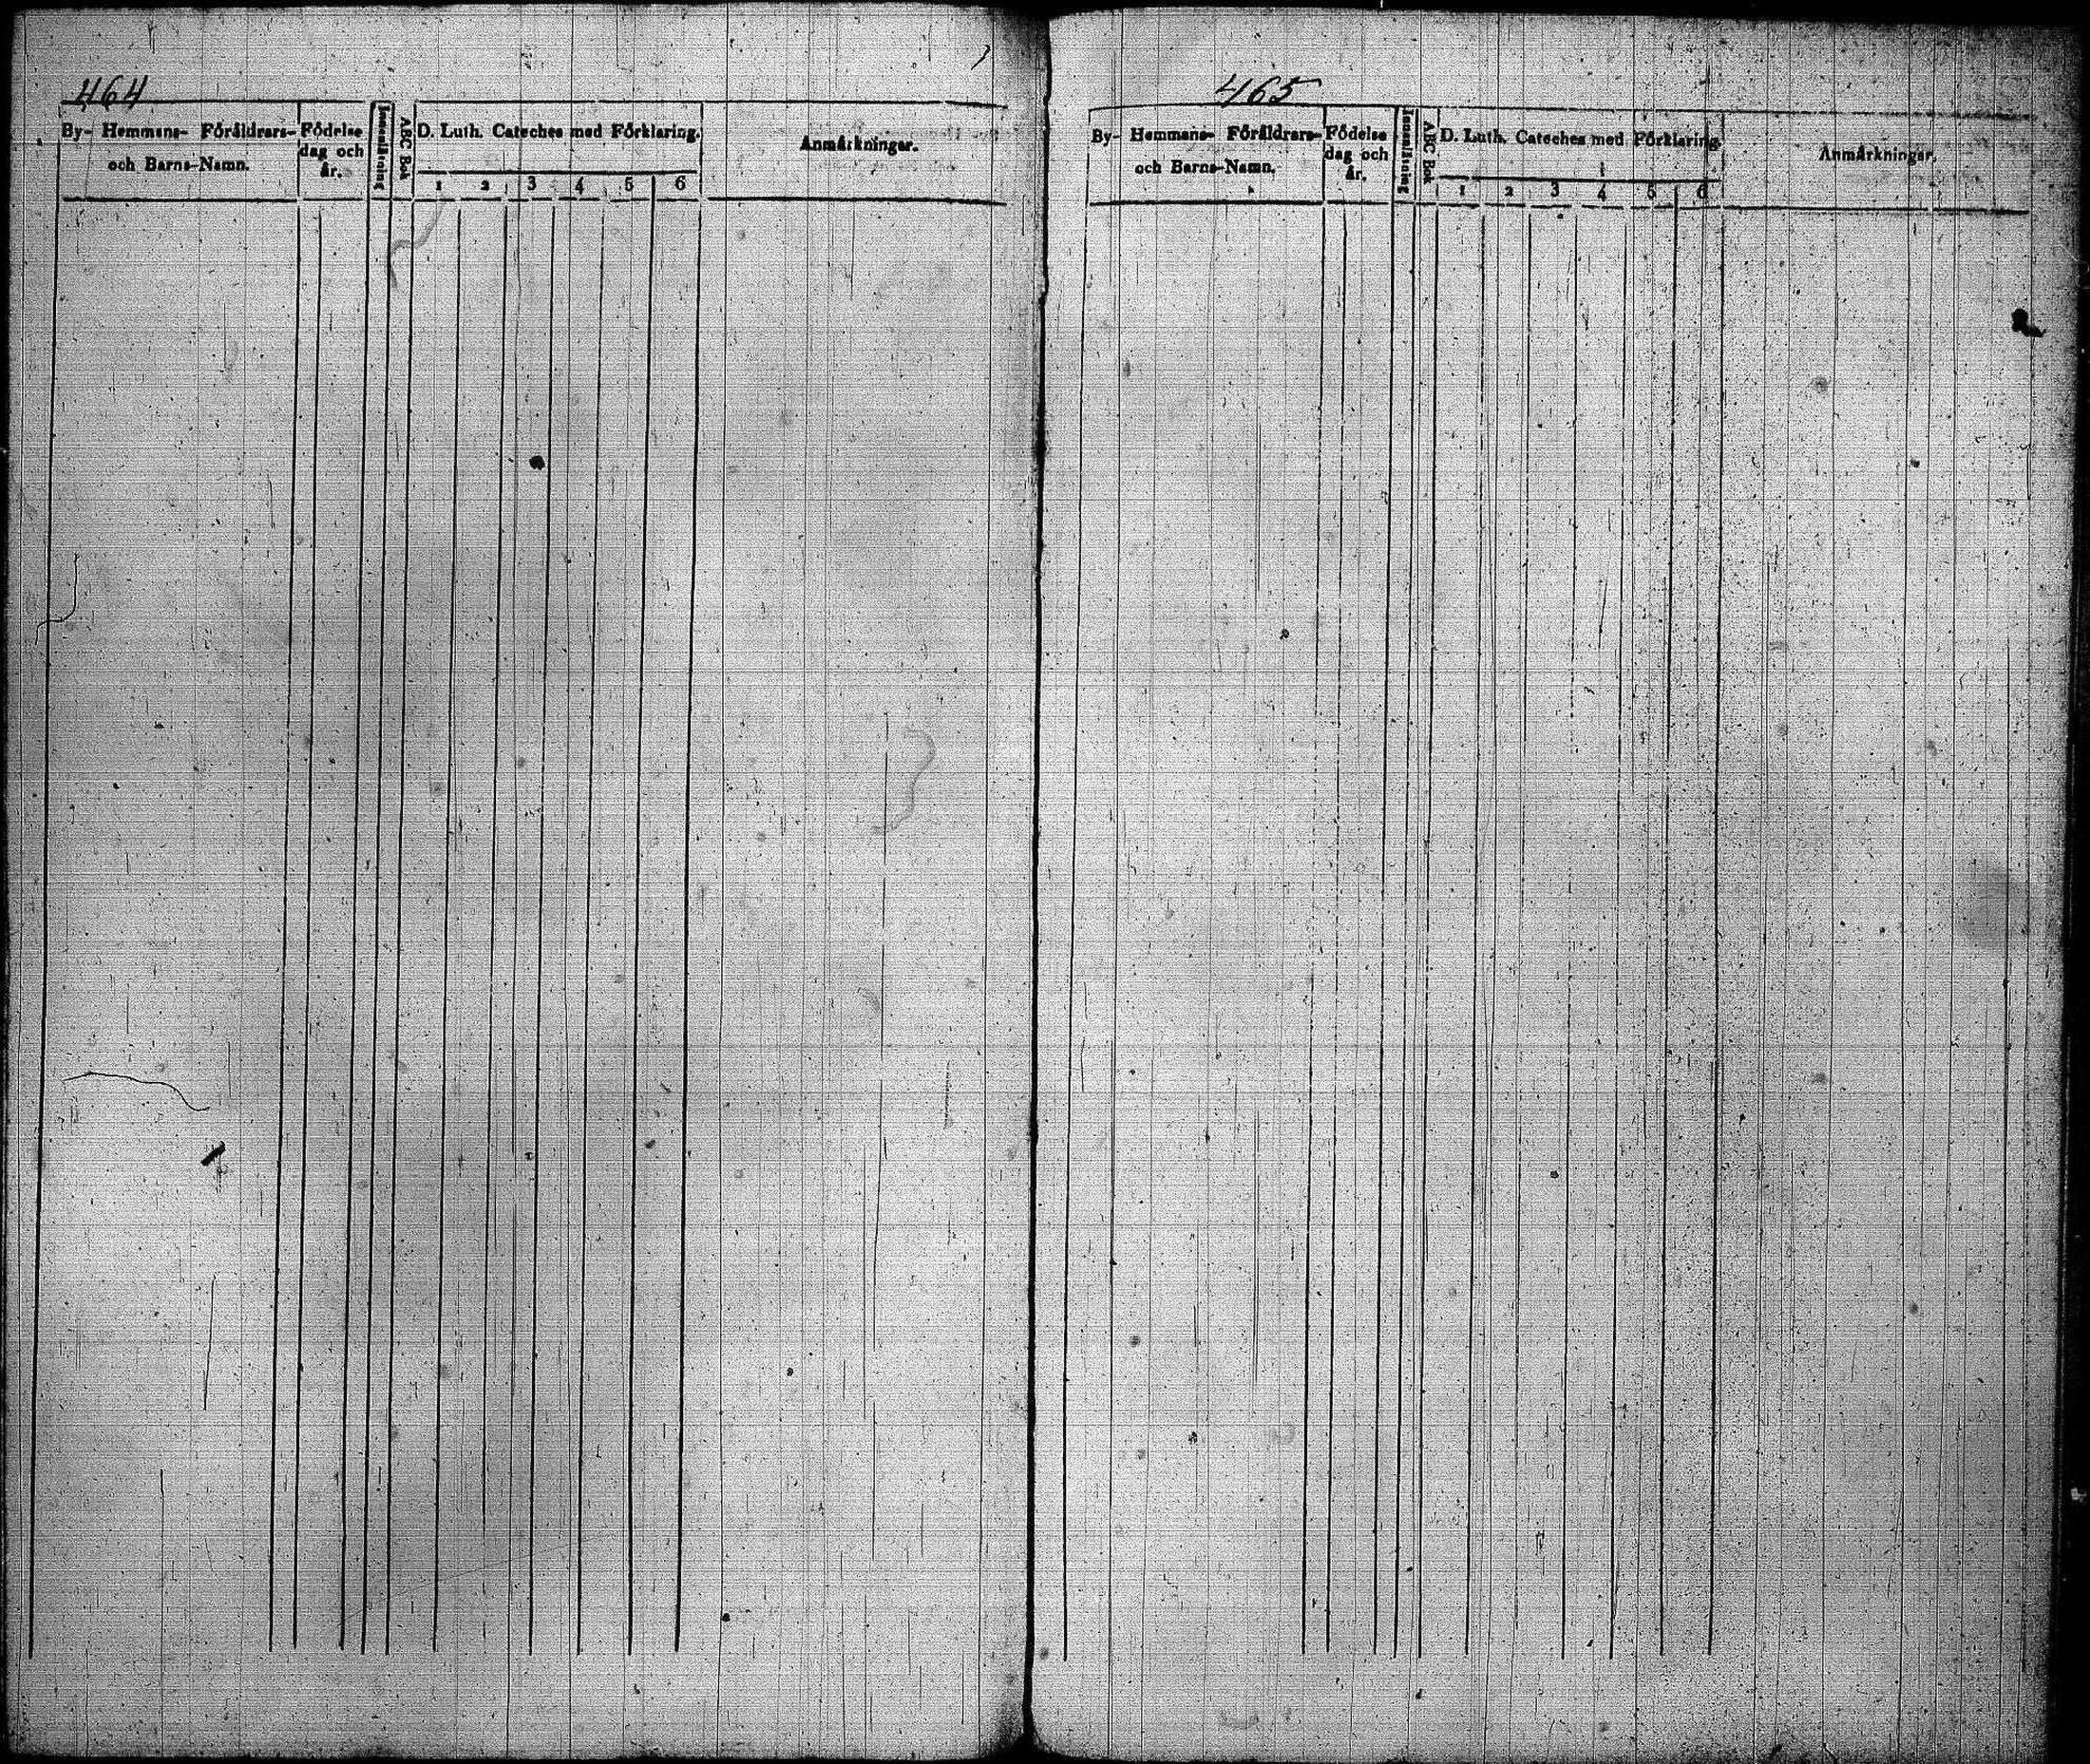 464
By- Hemmans- Föråldrars-
och Barns-Namn.
Födelse
dag och
år.
Innanläsning
ABC Bok
D. Luth. Cateches med Förklaring.
1 2 3 4 5 6
Anmärkningar.
465
By- Hemmans- Föråldrars-
och Barns-Namn.
Födelse
dag och
år.
Innanläsning
ABC Bok
D. Luth. Cateches med Förklaring.
1 2 3 4 5 6
Anmärkningar.